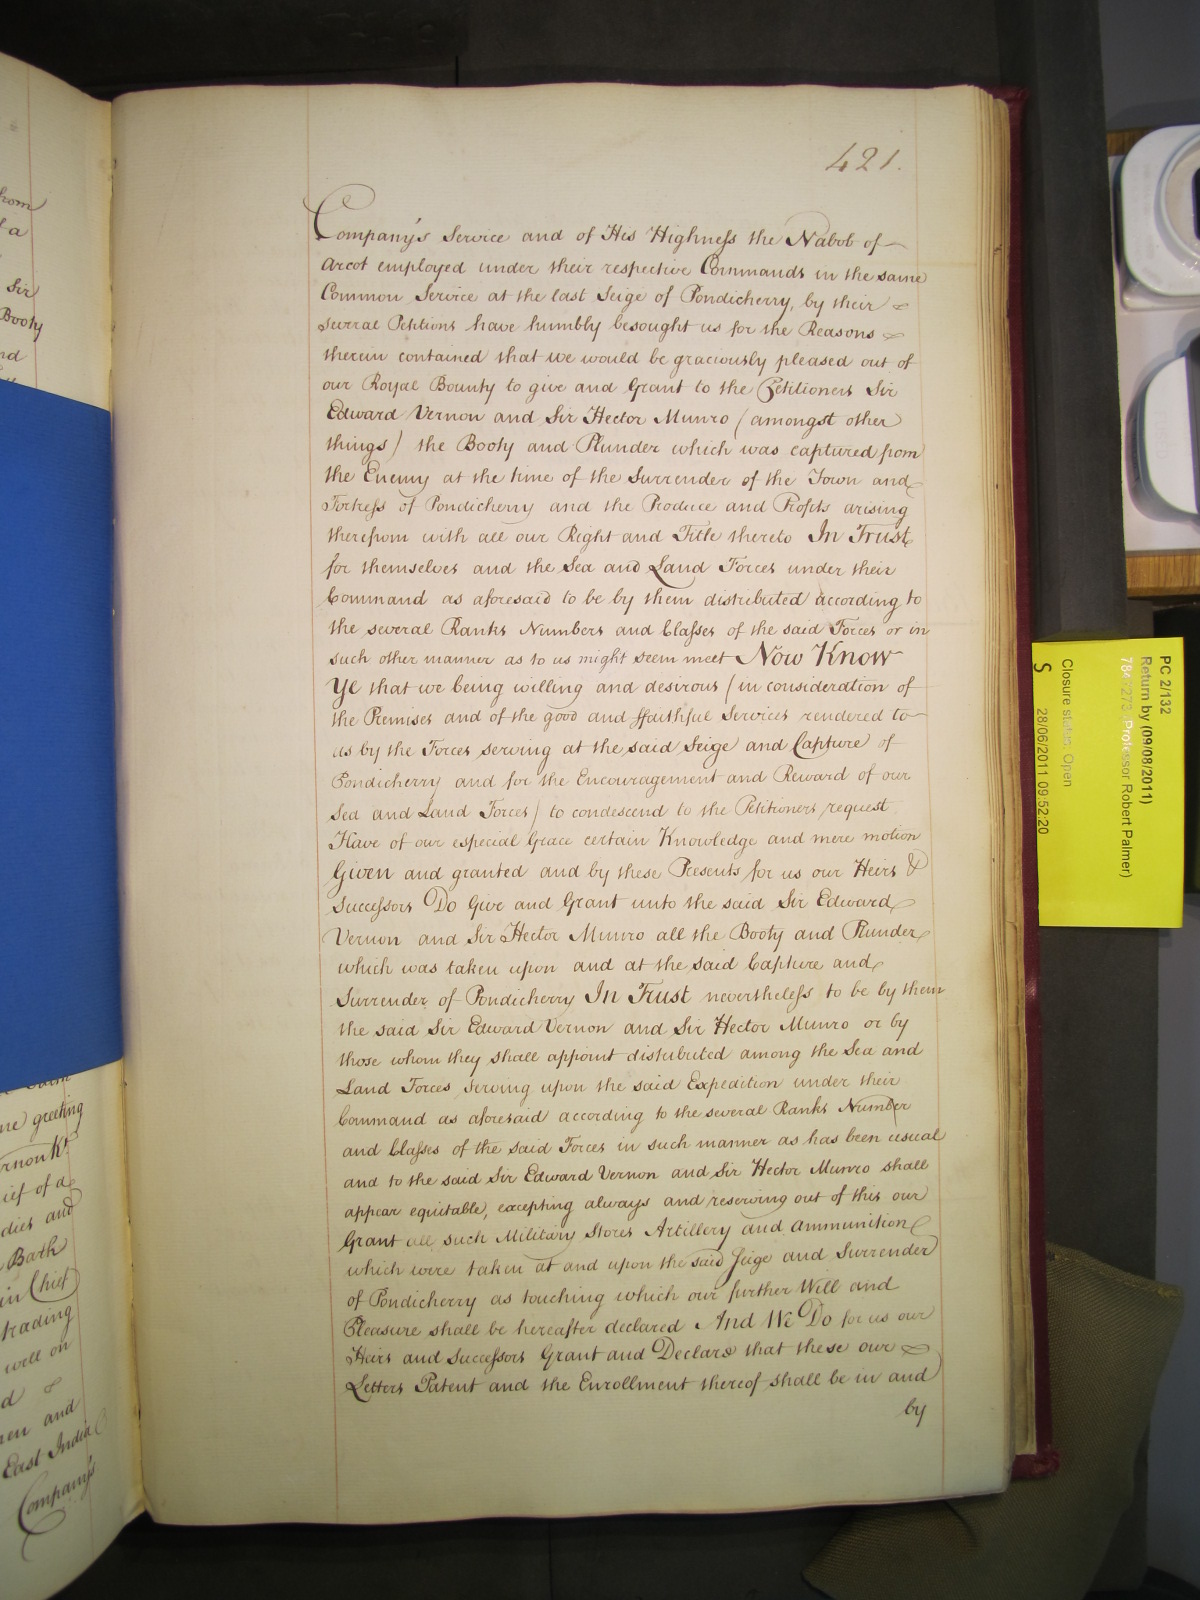 421.
Company's Service and of His Highness the Nabob of
Arcot employed under their respective Commands in the same
Common Service at the last Seige of Pondicherry, by their
several Petitions have humbly besought us for the Reasons
therein contained that we would be graciously pleased out of
our Royal Bounty to give and Grant to the Petitioners Sir
Edward Vernon and Sir Hector Munro (amongst other
things) the Booty and Plunder which was captured from
the Enemy at the time of the Surrender of the Town and
Fortress of Pondicherry and the Produce and Profits arising
therefrom with all our Right and Title thereto In Trust
for themselves and the Sea and Land Forces under their
Command as aforesaid to be by them distributed according to
the several Ranks Numbers and Classes of the said Forces or in
such other manner as to us might seem meet Now Know
Ye that we being willing and desirous (in consideration of
the Premises and of the good and ffaithful Services rendered to
us by the Forces serving at the said Seige and Capture of
Pondicherry and for the Encouragement and Reward of our
Sea and Land Forces) to condescend to the Petitioners request
Have of our especial Grace certain Knowledge and mere motion
Given and granted and by these Presents for us our Heirs &
Successors Do Give and Grant unto the said Sir Edward
Vernon and Sir Hector Munro all the Booty and Plunder
which was taken upon and at the said Capture and
Surrender of Pondicherry In Trust nevertheless to be by them
the said Sir Edward Vernon and Sir Hector Munro or by
those whom they shall appoint distributed among the Sea and
Land Forces serving upon the said Expedition under their
Command as aforesaid according to the several Ranks Number
and Classes of the said Forces in such manner as has been usual
and to the said Sir Edward Vernon and Sir Hector Munro shall
appear equitable, excepting always and reserving out of this our
Grant all such Military Stores Artillery and Ammunition
which were taken at and upon the said Seige and Surrender
of Pondicherry as touching which our further Will and
Pleasure shall be hereafter declared And We Do for us our
Heirs and Successors Grant and Declare that these our
Letters Patent and the Enrollment thereof shall be in and
by
hom
a
Sir
Booty
nd
greeting
rnon Kt.
ief of a
dies and
Bath
in Chief
trading
well on
d
and
East India
Company's
PC 2/132
Return by (09/08/2011)
Professor Robert Palmer)
Closure status: Open
S
28/06/2011 09:52:20